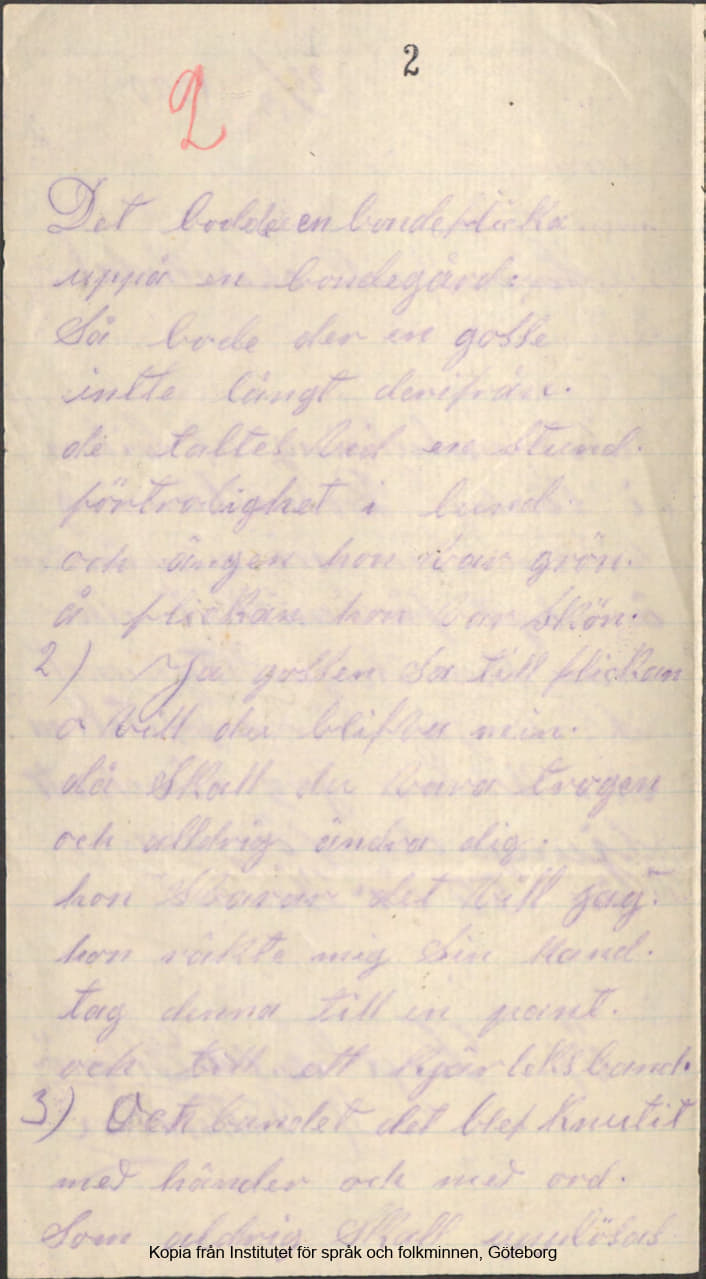 2
2
Det bodde en bondeflicka
uppå en bondegård.
Så bode der en gosse
intte långt derifrån.
de taltes vid en stund.
förtrolighet i lund.
och ängen hon var grön.
å flickan hon var skön.
2) Ja gossen sa till flickan
o vill du blifva min.
då skall du vara trogen
och alldrig ändra dig.
hon svarar det vill jag.
hon räkte mig sin hand.
tag denna till en pant.
och till ett kjärleksband.
3) Och bandet det blef knutit
med händer och med ord.
Som aldrig skall upplösas
Kopia från Institutet för språk och folkminnen, Göteborg